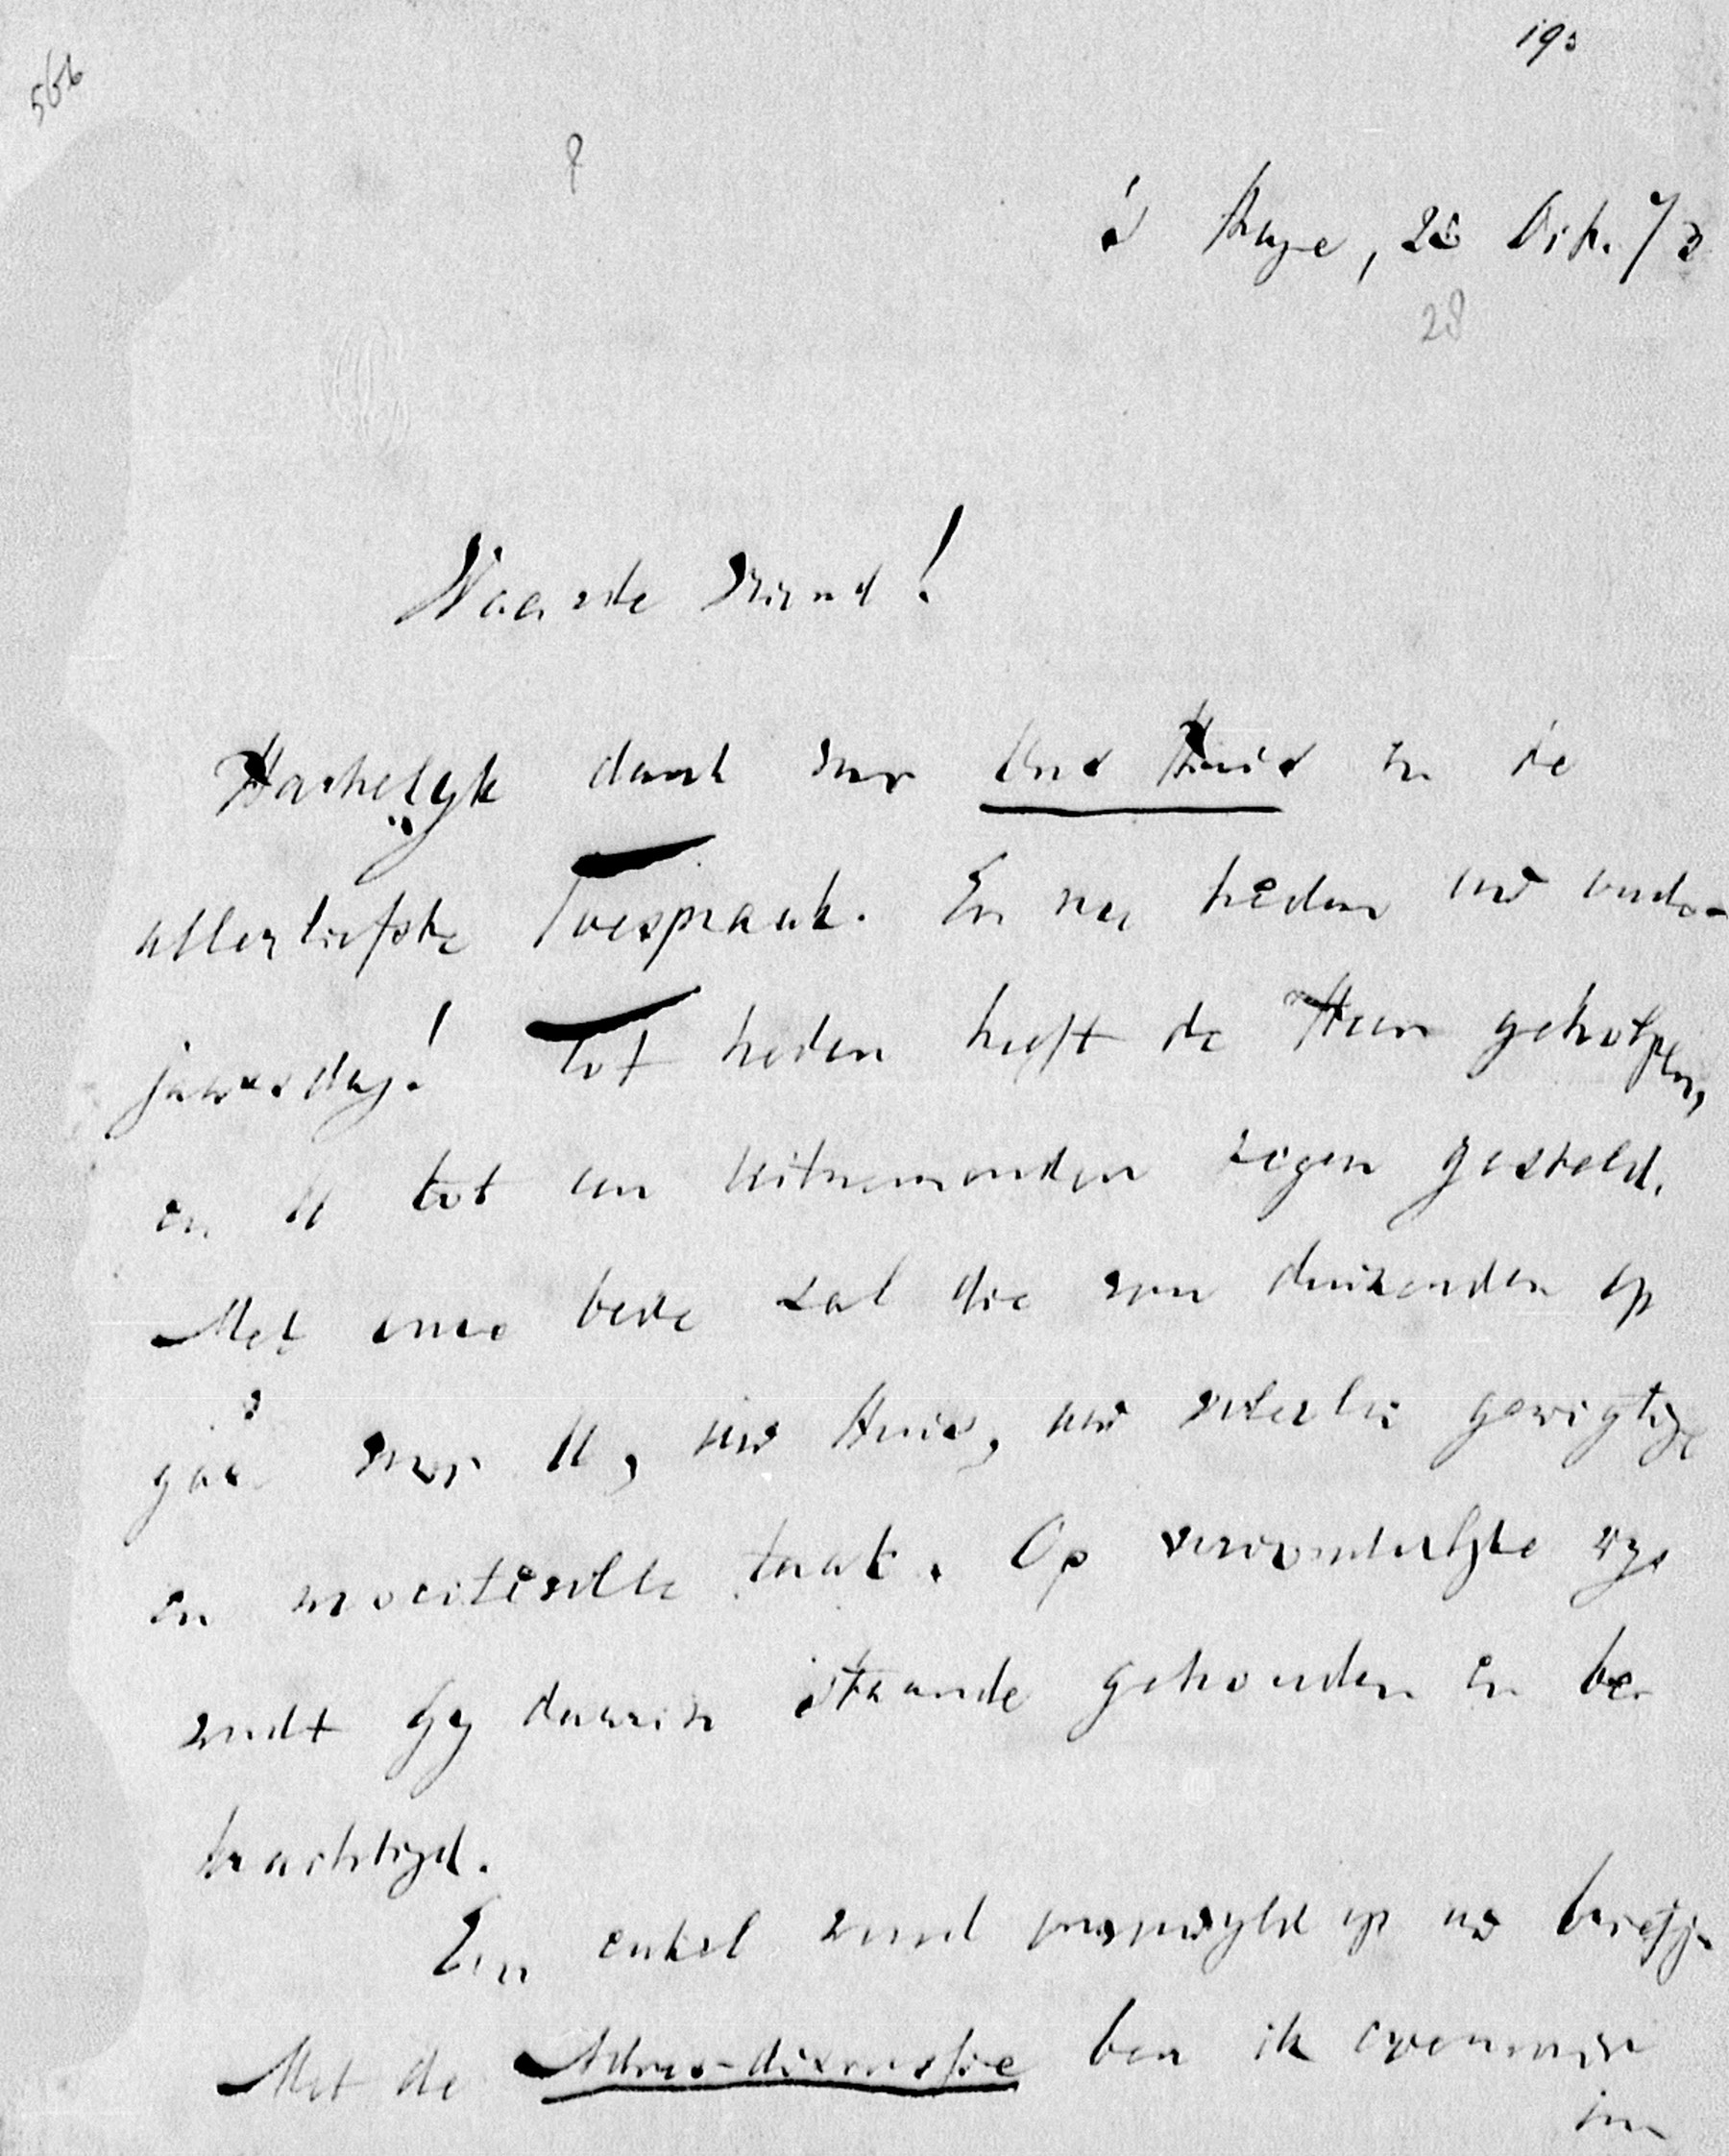 566
193
's Hage, 28 Oct. 73
28
Waarde Vriend!
Hartelijk dank voor Ons Huis en de
allerliefste Toespraak. En nu heden uw verja-
jaarsdag! Tot heden heeft de Heer geholpen,
en U tot een uitnemenden zegen gesteld.
Met onze bede zal die van duizenden op
gaan voor U, uw Huis, uw veelzins gewigtige
en moeitevolle taak. Op verwonderlijke wijs
wordt Gy daarin staande gehouden en be-
krachtigd.
Een enkel woord op uw briefje
Met de Adres-discussie ben ik evenmin
in